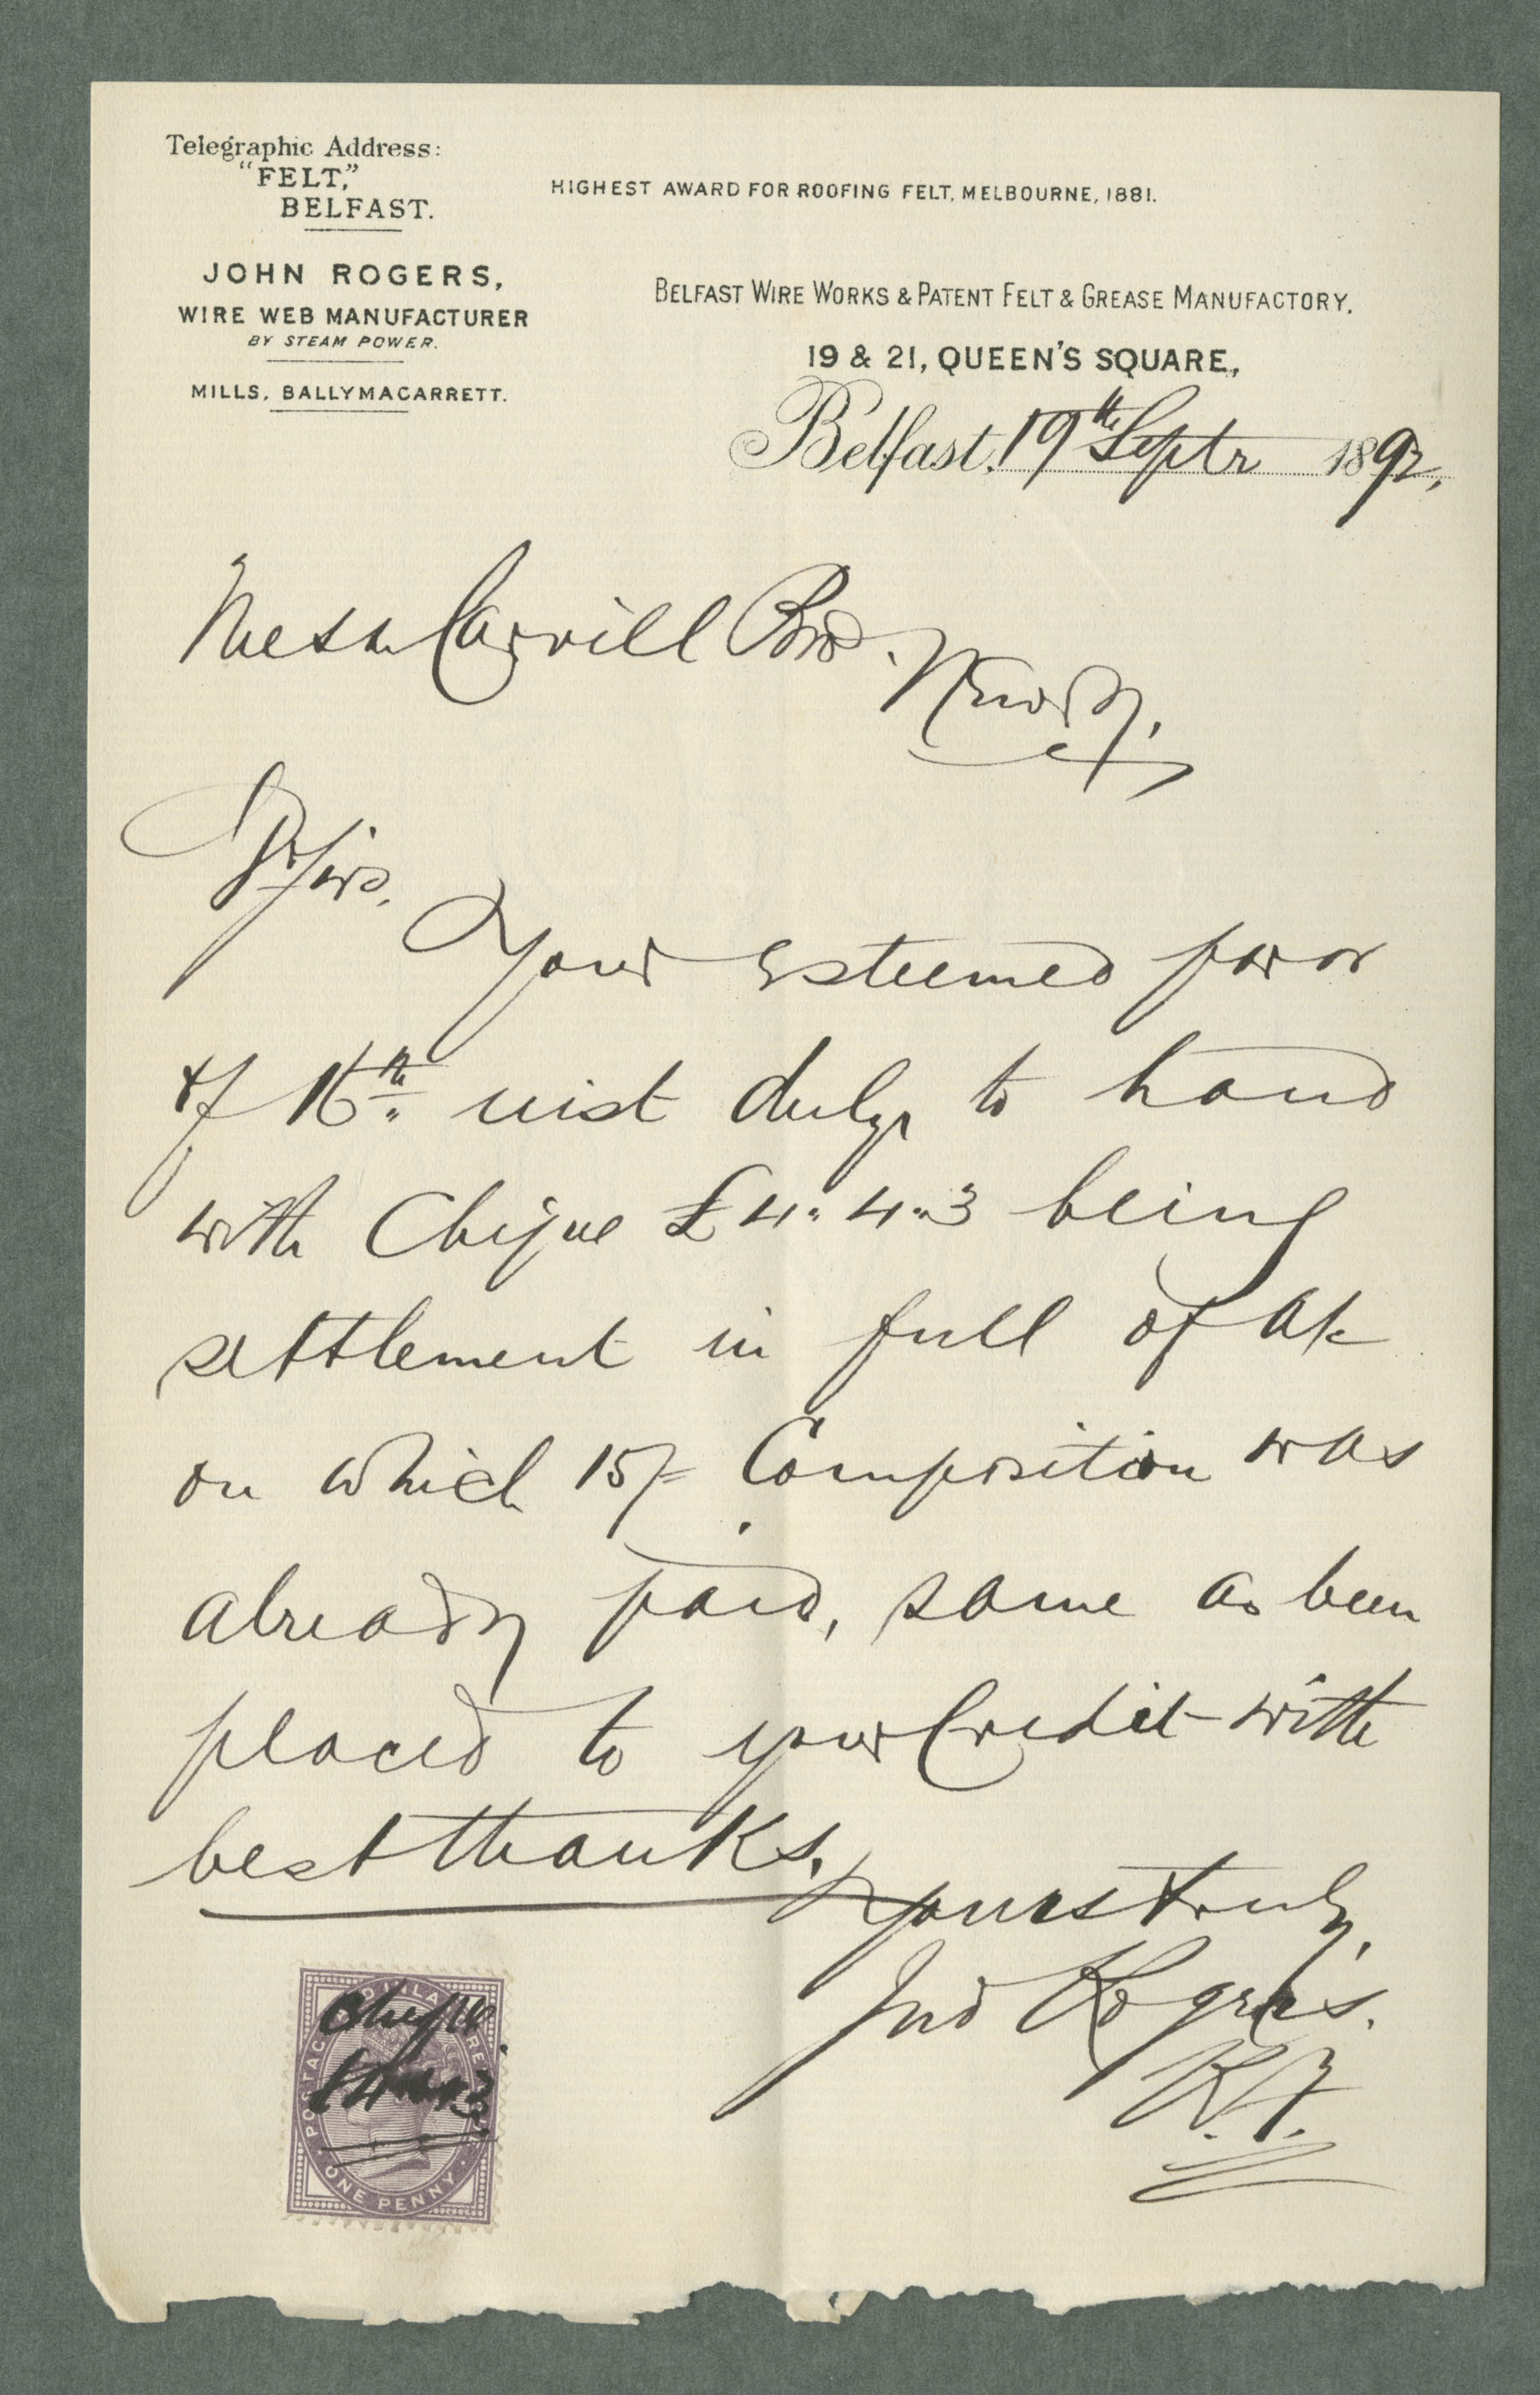 Telegraphic Address:
"FELT,"
BELFAST.
HIGHEST AWARD FOR ROOFING FELT, MELBOURNE, 1881.
JOHN ROGERS,
WIRE WEB MANUFACTURER
BY STEAM POWER.
MILLS, BALLYMACARRETT.
BELFAST WIRE WORKS & PATENT FELT & GREASE MANUFACTORY.
19 & 21, QUEEN'S SQUARE,
Belfast, 19th Septr 1892,
Messrs Carvill Bros.
Newry.
D/Sirs,
Your esteemed favor
of 16th inst duly to hand
with Cheque £4.4.3 being
settlement in full of A/c
on which 15/= Composition was
already paid, same as been
placed to your Credit with
best thanks.
Yours truly,
Jno Rogers.
POSTAGE AND INLAND REVENUE
ONE PENNY
Cheque
£4.4.3